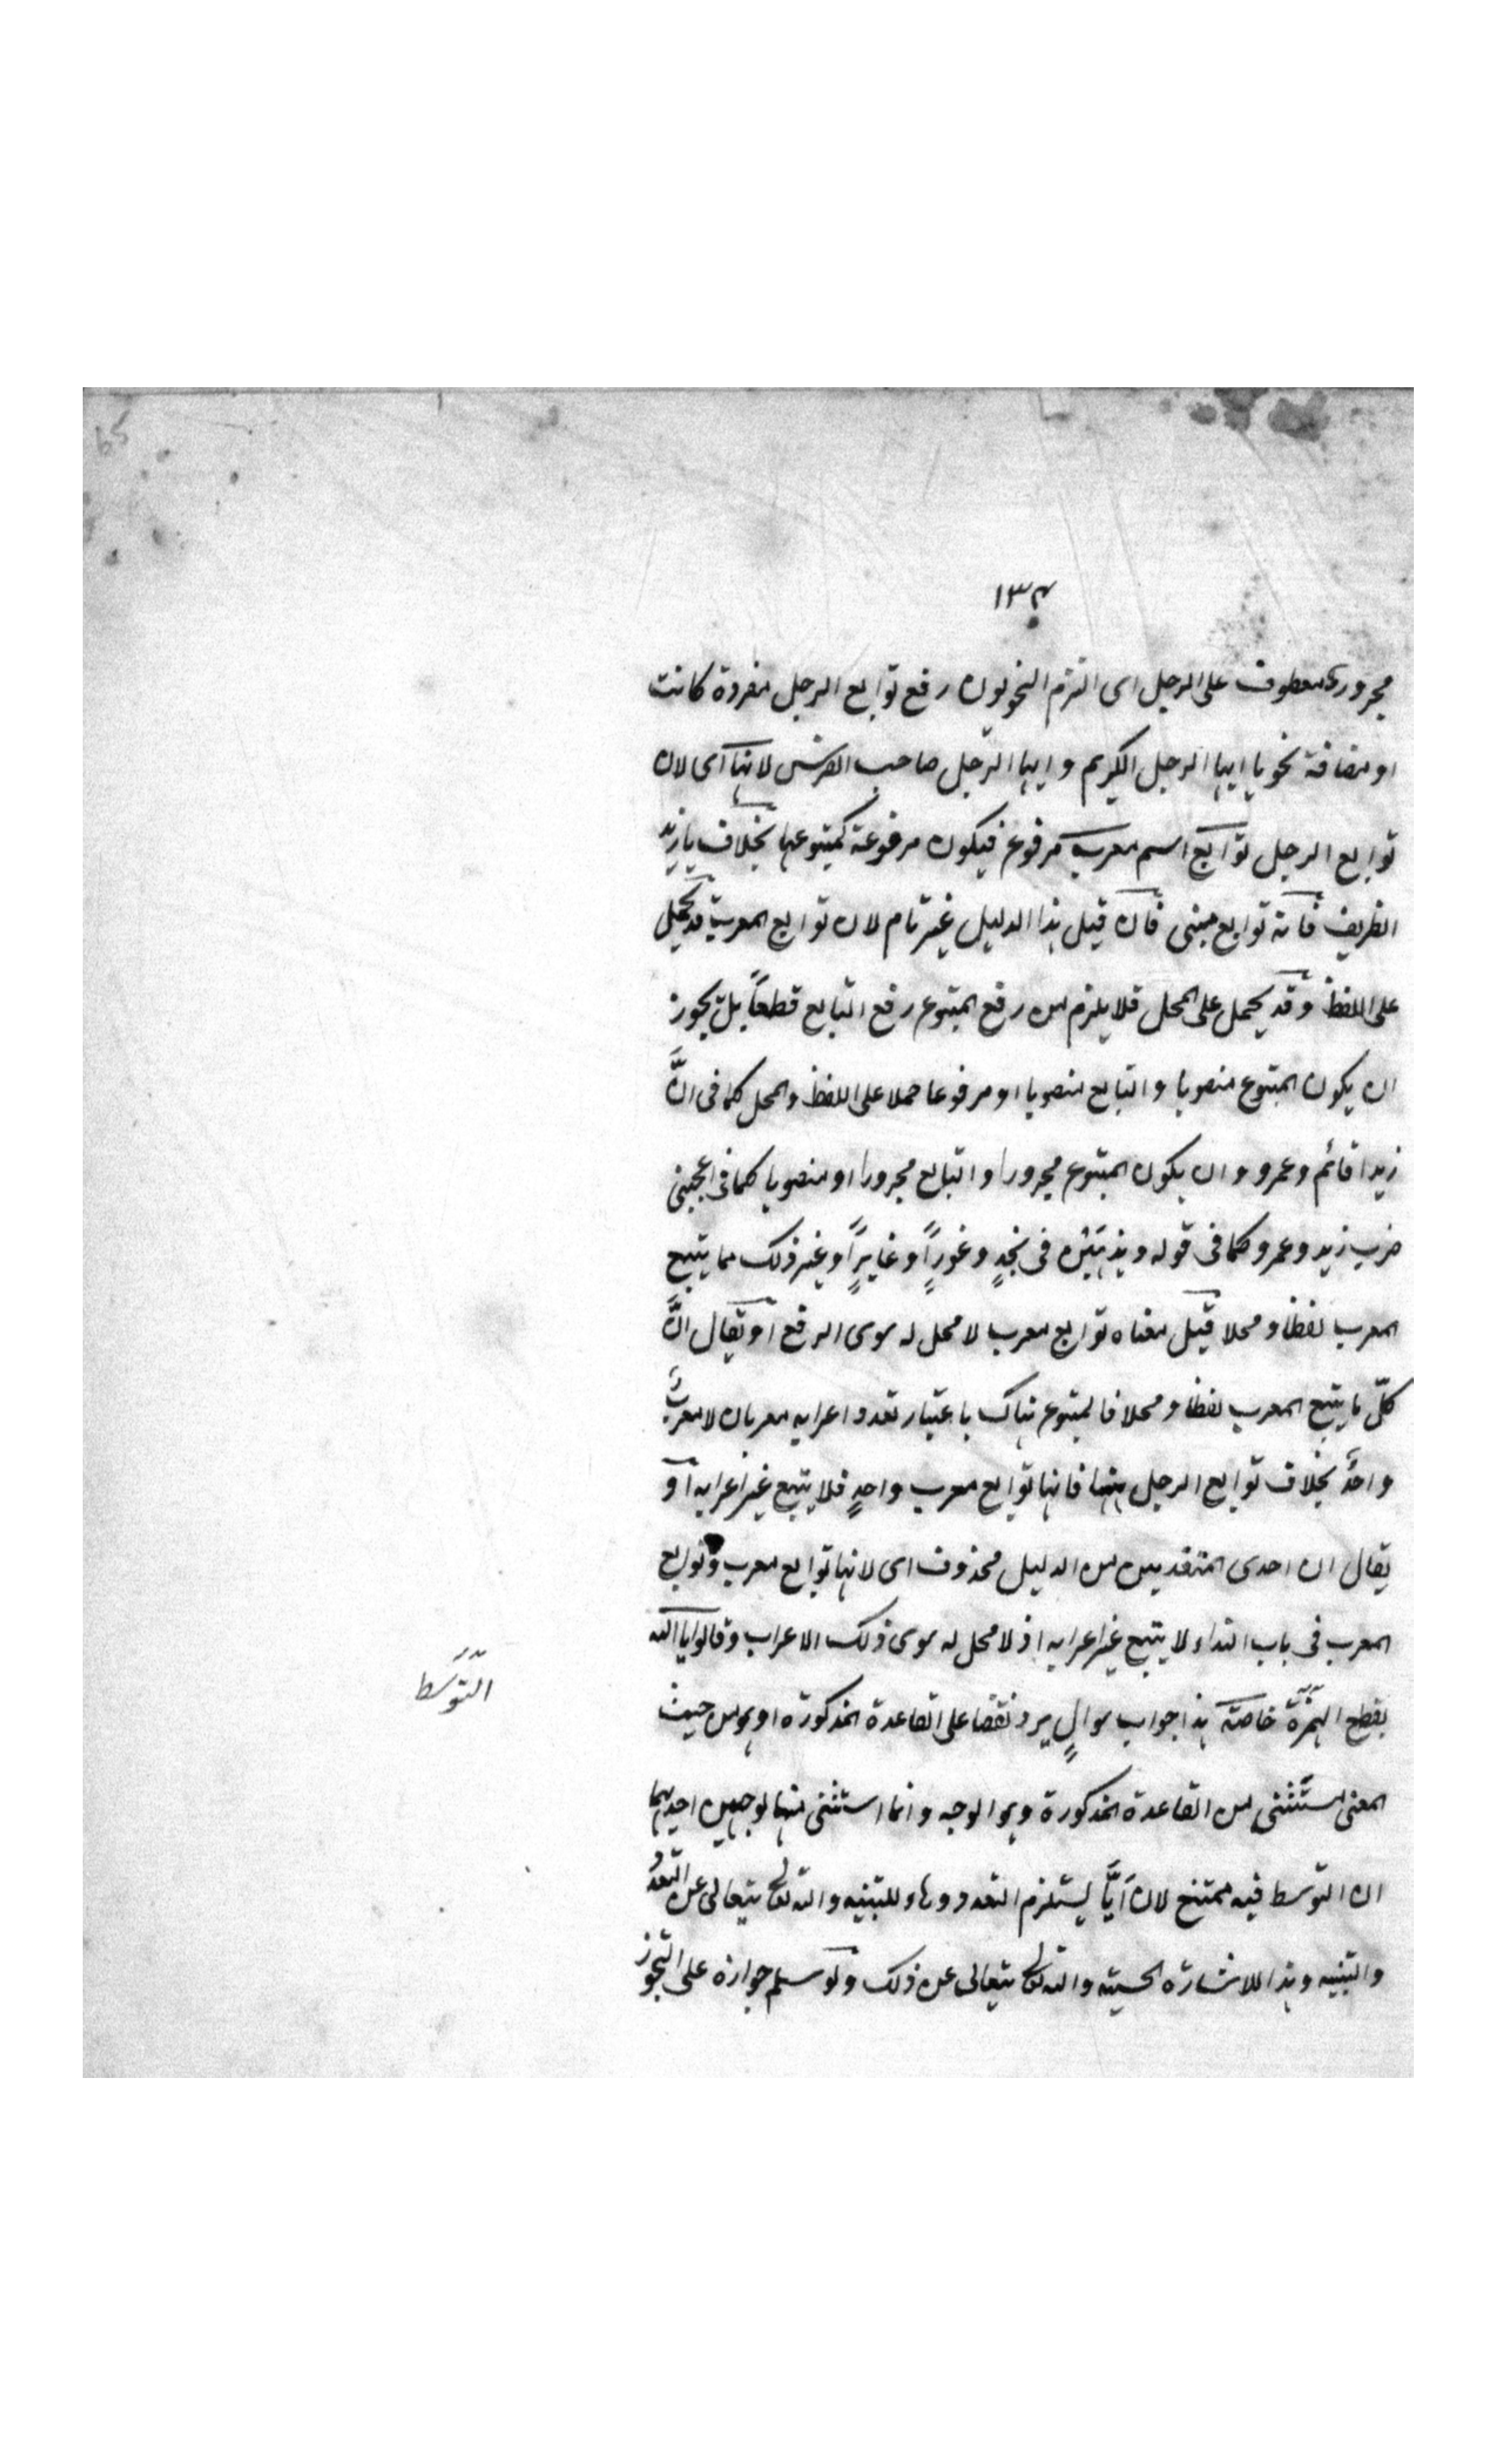 ١٣٤
مجرور معطوف على الرجل اى التزم النحويون رفع توابع الرجل مفردة كانت
او مضافة نحو يا ايها الرجل الكريم وايها الرجل صاحب الفرس لانها اى لان
توابع الرجل توابع اسم معرب مرفوع فيكون مرفوعة كمتبوعها بخلاف يا زيد
الظريف فانه توابع مبنى فان قيل هذا الدليل غير تام لان توابع المعرب قد يحمل
على اللفظ وقد يحمل على المحل فلا يلزم من رفع المتبوع رفع التابع قطعاً بل يجوز
ان يكون المتبوع منصوبا والتابع منصوبا او مرفوعا حملا على اللفظ والمحل كما فى انَّ
زيدا قائم وعمرو وان يكون المتبوع مجرورا والتابع مجرورا او منصوبا كما فى اعجبنى
ضرب زيد وعمرو وكما فى قوله فى نجدٍ وغوراً وغايراً وغير ذلك مما يتبع
المعرب لفظا ومحلا قيل معناه توابع معرب لا محل له سوى الرفع او يقال انَّ
كلّ ما يتبع المعرب لفظا ومحلا فالمتبوع هناك باعتبار تعدد اعرابه معربان لا معربٌ
واحدٌ بخلاف توابع الرجل ههنا فانها توابع معرب واحدٍ فلا يتبع غير اعرابه او
يقال ان احدى المقدمتين من الدليل محذوف اى لانها توابع معرب وتوابع
المعرب فى باب النداء لا يتبع غير اعرابه اذ لا محل له سوى ذلك الاعراب وقالوا يا الله
بقطع الهمزة خاصة هذا جواب سوالٍ يرد نقضا على القاعدة المذكورة او هو من حيث
المعنى مستثنى من القاعدة المذكورة وهو الوجه وانما استثنى منها لوجهين احدهما
ان التوسط فيه ممتنع لان اَيًّا يستلزم التعدد وهاء للتنبيه والله تعالى يتعالى عن التعدد
والتنبيه وهذا للاشارة الحسية والله تعالى يتعالى عن ذلك ولو سلم جوازه على التجوز
التوسط